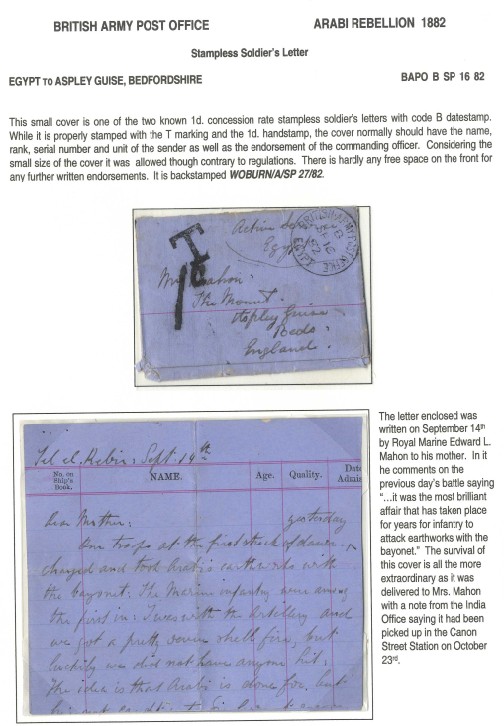 BRITISH ARMY POST OFFICE
ARABI REBELLION 1882
Stampless Soldier's Letter
EGYPT TO ASPLEY GUISE, BEDFORDSHIRE
BAPO B SP 16 82
This small cover is one of the two known 1d. concession rate stampless soldier's letters with code B datestamp.
While it is properly stamped with the T marking and the 1d. handstamp, the cover normally should have the name,
rank, serial number and unit of the sender as well as the endorsement of the commanding officer. Considering the
small size of the cover it was allowed though contrary to regulations. There is hardly any free space on the front for
any further written endorsements. It is backstamped WOBURN/A/SP 27/82.
Active
Egypt
BRITISH ARMY POST OFFICE
B
SP 16
82
EGYPT
T
1
Mrs Mahon
The Mount.
Aspley Guise
Beds:
England.
Tel el Kebir: Sept. 14th
No. on Ship's Book.
NAME.
Age.
Quality.
Date
Dear Mother:
yesterday
Our troops at the first streak of dawn
charged and took Arabi's earthworks with
the bayonet: The Marine infantry were among
the first in: I was with the Artillery and
we got a pretty severe shell fire, but
luckily we did not have anyone hit:
The idea is that Arabi is done for, but
The letter enclosed was
written on September 14th
by Royal Marine Edward L.
Mahon to his mother. In it
he comments on the
previous day's battle saying
"…it was the most brilliant
affair that has taken place
for years for infantry to
attack earthworks with the
bayonet." The survival of
this cover is all the more
extraordinary as it was
delivered to Mrs. Mahon
with a note from the India
Office saying it had been
picked up in the Canon
Street Station on October
23rd.